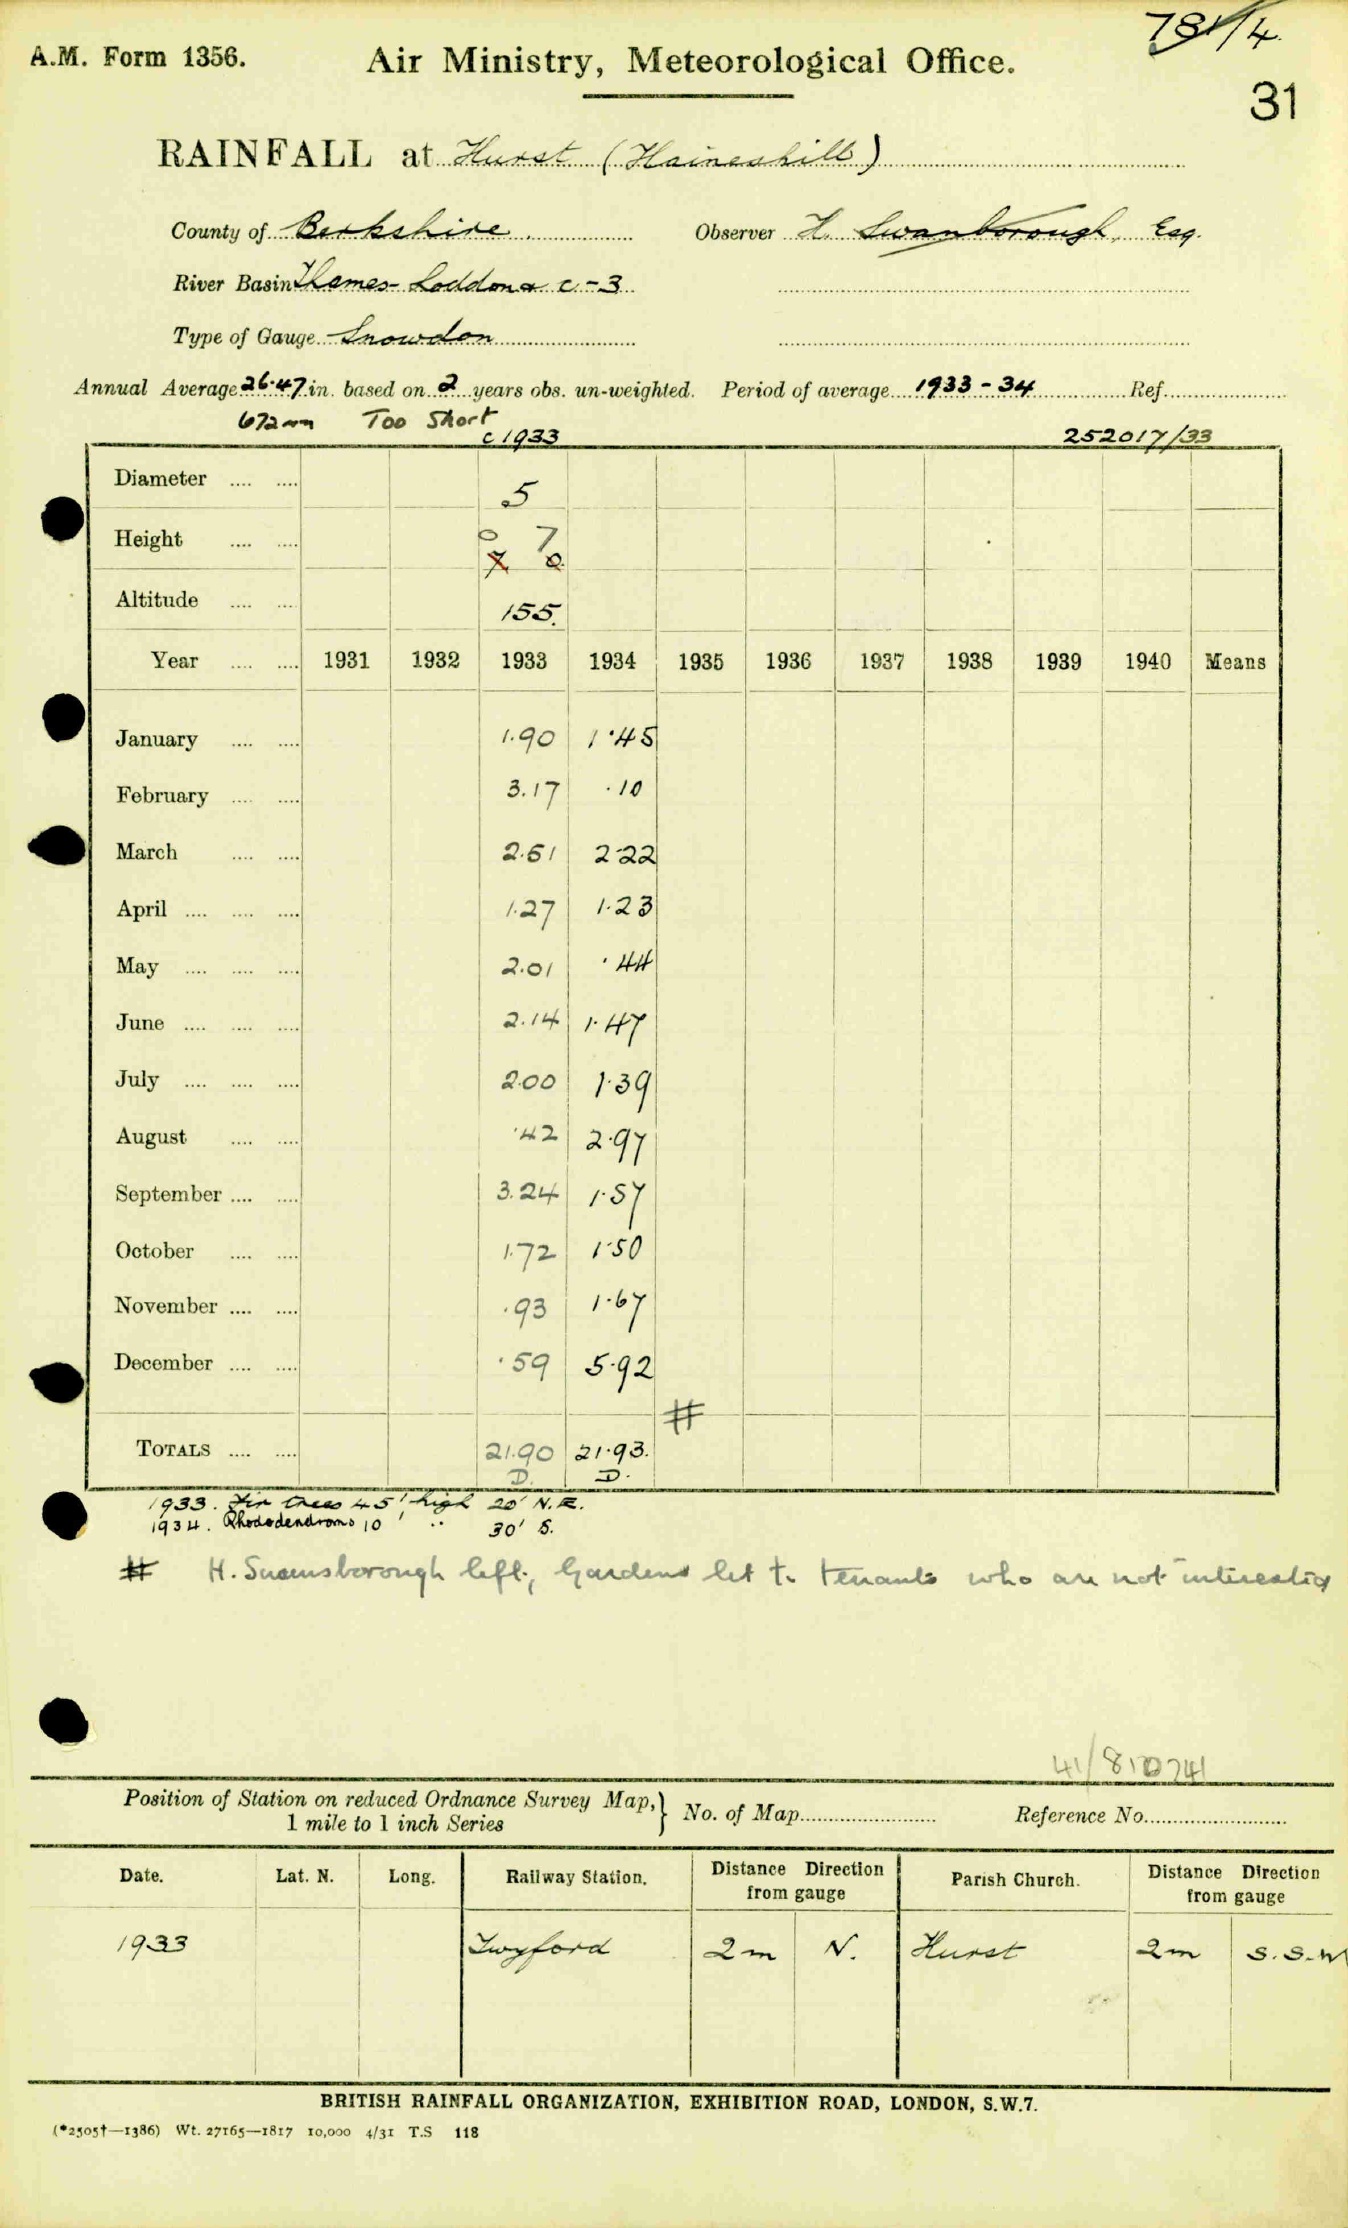 781/4.
A.M. Form 1356. Air Ministry, Meteorological Office.
31
RAINFALL at Hurst (Haineshill)
County of Berkshire. Observer H. Swanborough, Esq.
River Basin Thames-Loddon & c-3
Type of Gauge Snowdon
Annual Average 26.47 in. based on 2 years obs. un-weighted. Period of average 1933-34 Ref.
672mm Too Short
c 1933 252017/33
Diameter 5
Height 0 7
7 0
Altitude 155.
Year 1931 1932 1933 1934 1935 1936 1937 1938 1939 1940 Means
January 1.90 1.45
February 3.17 .10
March 2.51 2.22
April 1.27 1.23
May 2.01 .44
June 2.14 1.47
July 2.00 1.39
August .42 2.97
September 3.24 1.57
October 1.72 1.50
November .93 1.67
December .59 5.92
#
TOTALS 21.90 21.93.
D. D.
1933. Fir trees 45' high 20' N.E.
1934. Rhododendrons 10' .. 30' S.
# H. Swansborough left, Gardens let to tenants who are not interested
41/810741
Position of Station on reduced Ordnance Survey Map, 1 mile to 1 inch Series } No. of Map Reference No.
Date. Lat. N. Long. Railway Station. Distance Direction from gauge Parish Church. Distance Direction from gauge
1933 Twyford 2m N. Hurst 2m S.S.W
BRITISH RAINFALL ORGANIZATION, EXHIBITION ROAD, LONDON, S.W.7.
(*2505†—1386) Wt. 27165—1817 10,000 4/31 T.S 118